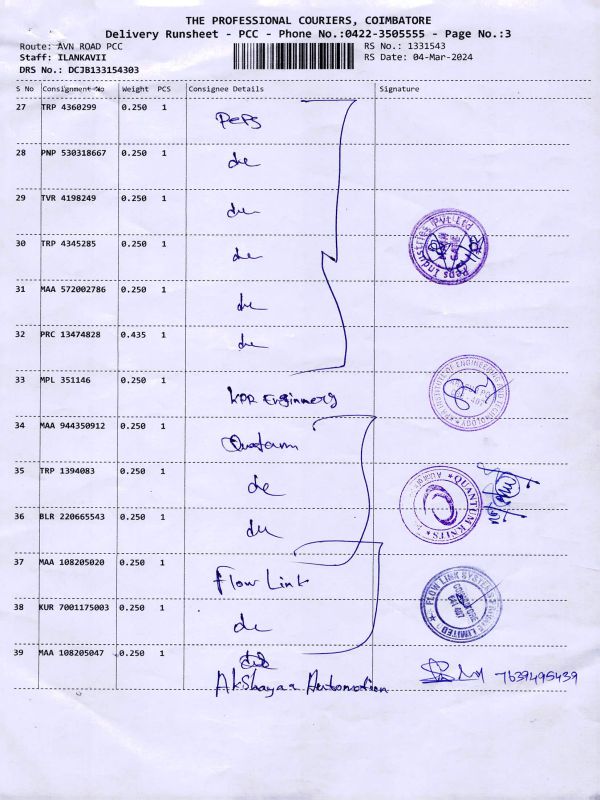 THE PROFESSIONAL COURIERS, COIMBATORE
Delivery Runsheet - PCC - Phone No.:0422-3505555 - Page No.:3
Route: AVN ROAD PCC RS No.: 1331543
Staff: ILANKAVII RS Date: 04-Mar-2024
DRS No.: DCJB133154303
S No Consignment No Weight PCS Consignee Details Signature
27 TRP 4360299 0.250 1 PePs
28 PNP 530318667 0.250 1 do
29 TVR 4198249 0.250 1 do
30 TRP 4345285 0.250 1 do
31 MAA 572002786 0.250 1 do
32 PRC 13474828 0.435 1 do
Peps Industries Pvt Ltd
33 MPL 351146 0.250 1 KPR Enginners
KPR INSTITUTE OF ENGINEERING AND TECHNOLOGY
34 MAA 944350912 0.250 1 Quatam
35 TRP 1394083 0.250 1 do
QUANTUM KNITS
36 BLR 220665543 0.250 1 do
37 MAA 108205020 0.250 1 Flow Link
38 KUR 7001175003 0.250 1 do
FLOW LINK SYSTEMS PRIVATE LIMITED
COIMBATORE
641 407
39 MAA 108205047 0.250 1
Akshayaa Automation 7639495439